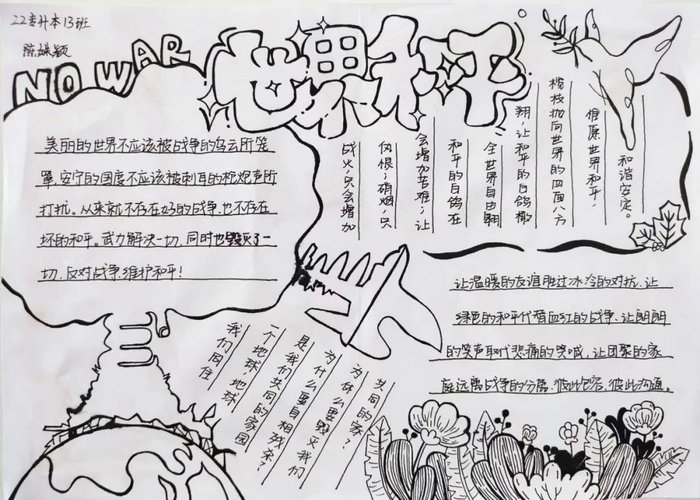 22专升本13班
陈姝颖
NO WAR
世界和平
美丽的世界不应该被战争的乌云所笼
罩,安宁的国度不应该被刺耳的枪炮声所
打扰。从来就不存在好的战争,也不存在
坏的和平。武力解决一切,同时也毁灭了一
切,反对战争,维护和平!
战火,只会增加
仇恨;硝烟,只
会增加苦难;让
和平的白鸽在
全世界自由翱
翔,让和平的白鸽橄
榄枝抛向世界的四面八方
但愿世界和平,
和谐安定。
让温暖的友谊胜过冰冷的对抗,让
绿色的和平代替血红的战争,让朗朗
的笑声取代悲痛的哭喊,让团聚的家
庭远离战争的分离,彼此包容,彼此沟通。
我们同住
一个地球,地球
是我们共同的家园
为什么要自相残杀?
为什么要毁灭我们
共同的家?